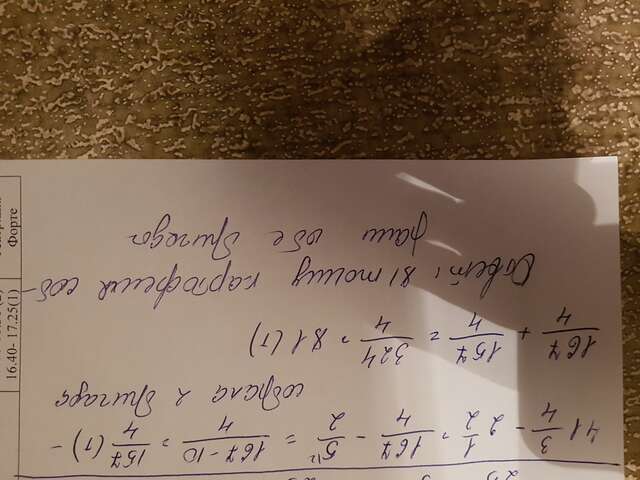 16.40- 17.25(1)
Форте
41 3/4 - 2 1/2 = 167/4 - 5/2 = 167-10/4 = 157/4 (т) -
собрала 2 бригада
167/4 + 157/4 = 324/4 = 81 (т)
Ответ: 81 тонну картофеля соб-
рали обе бригады